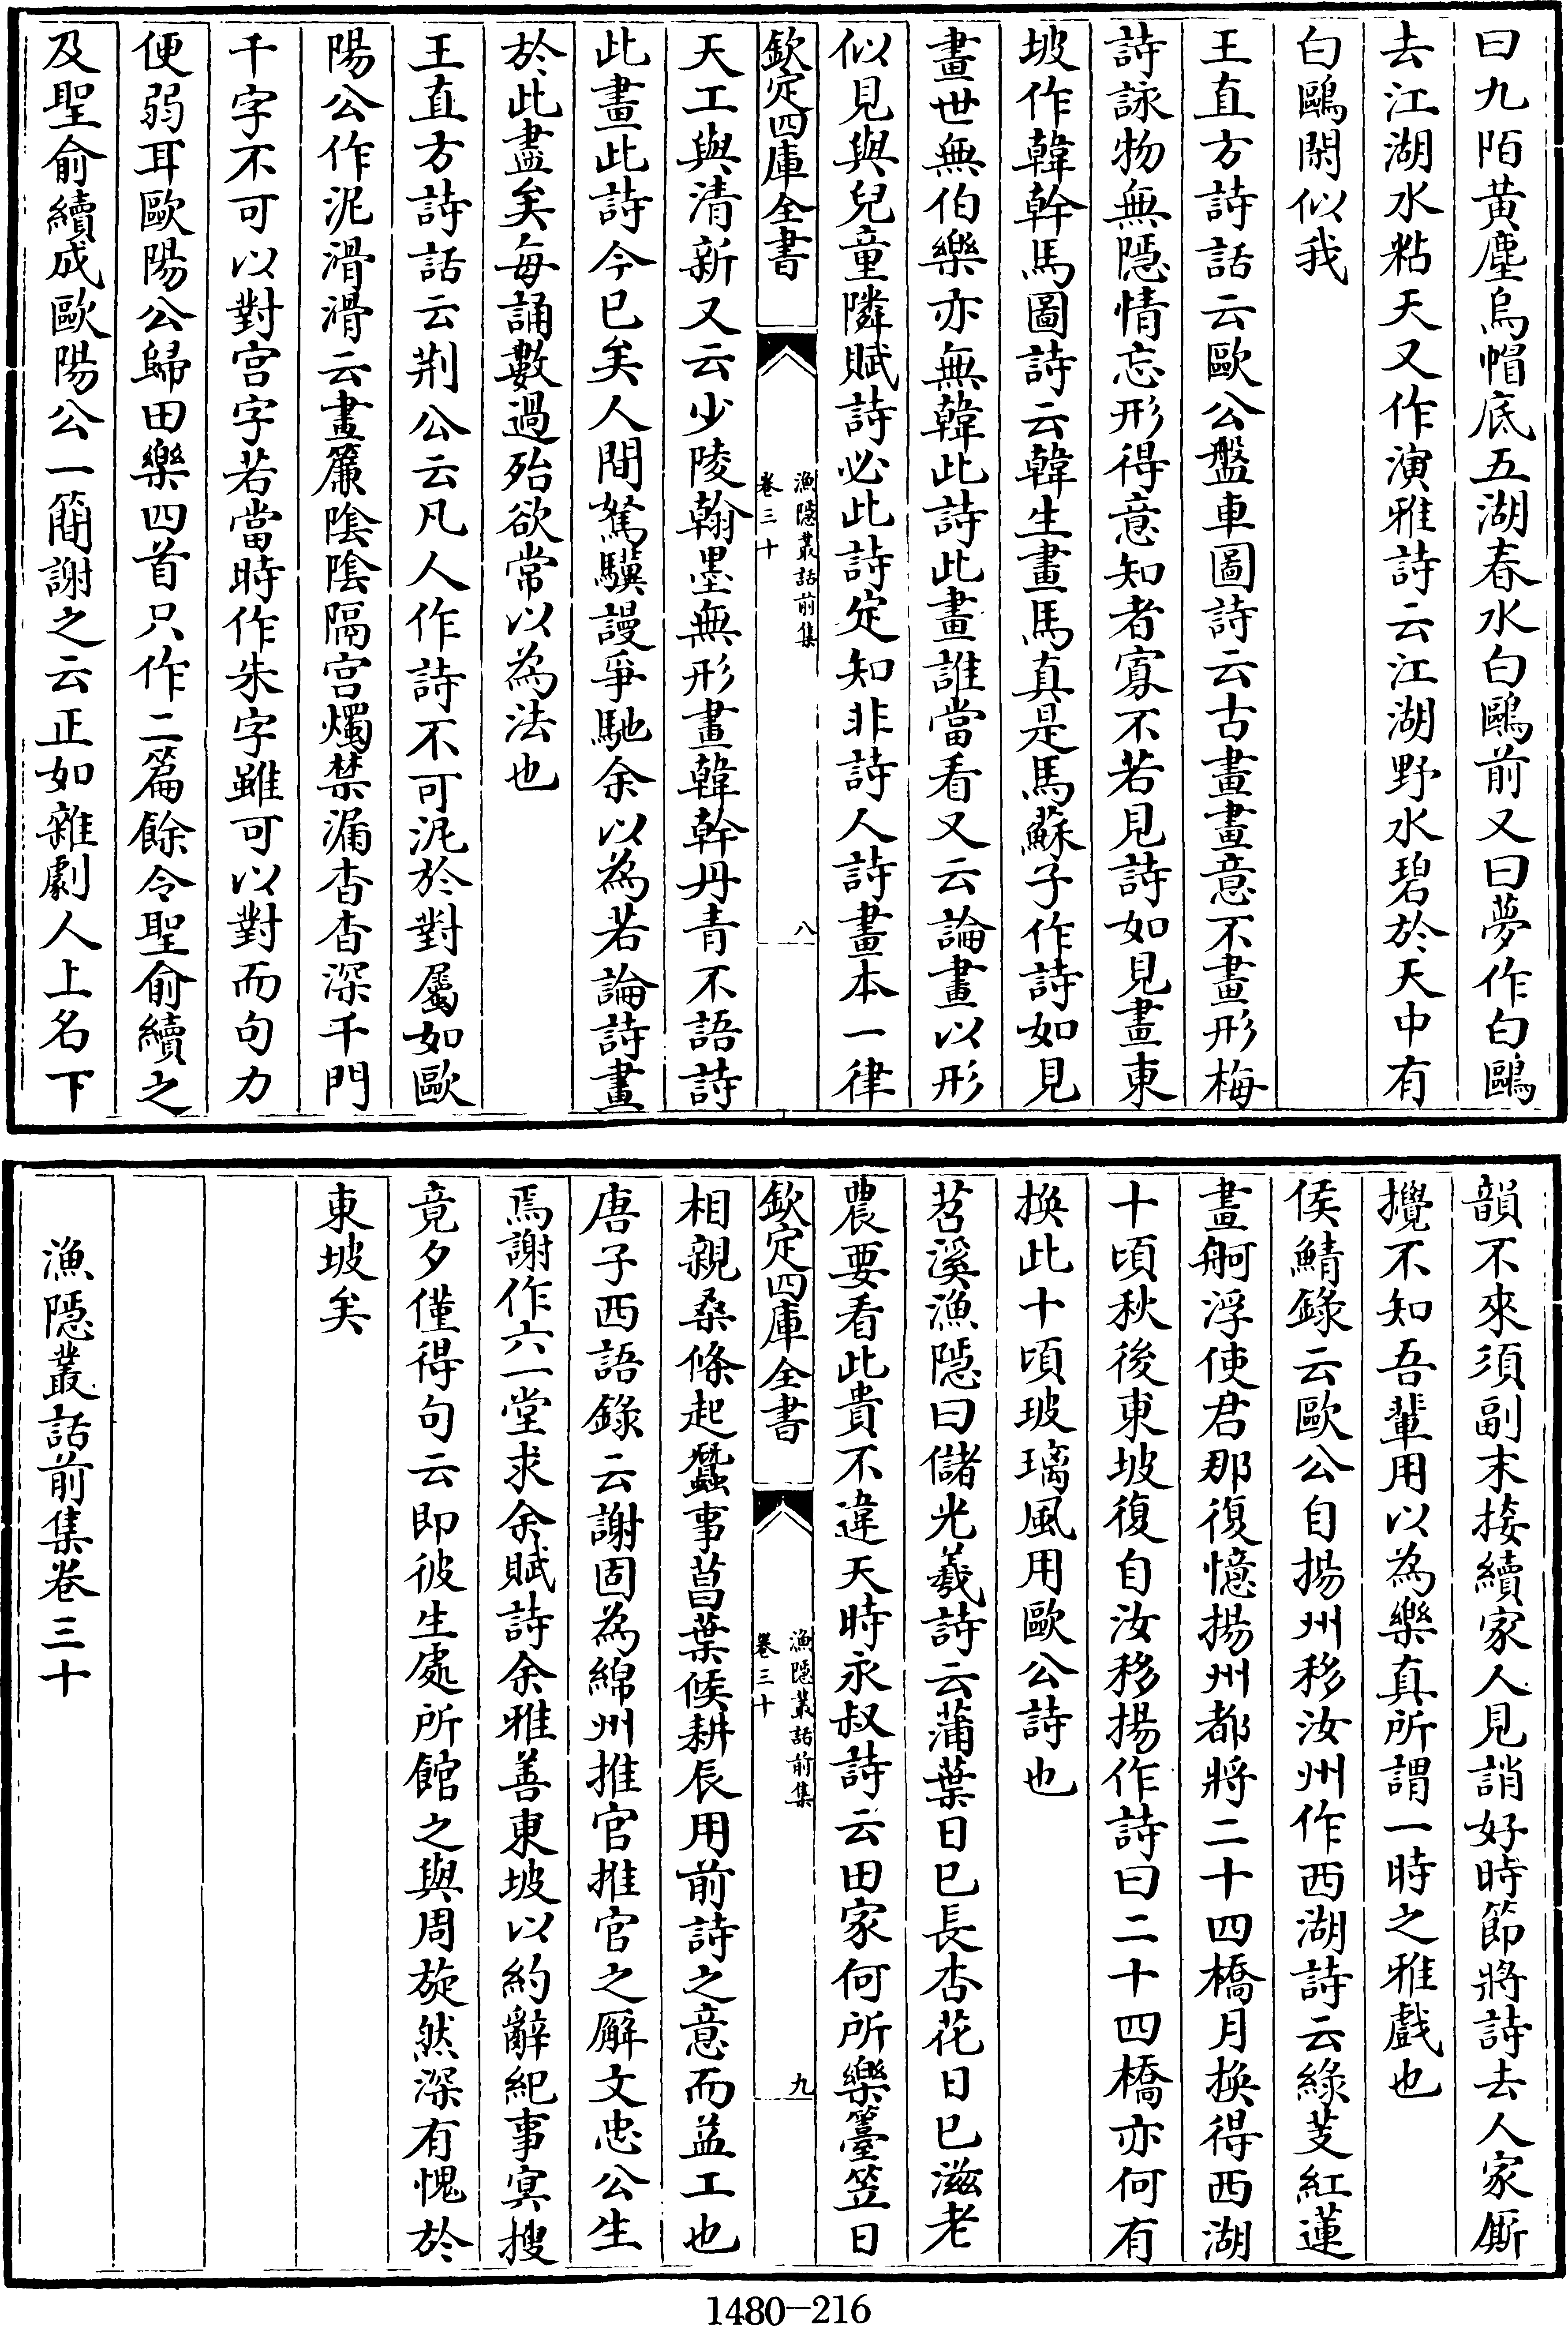 曰九陌黄塵烏帽底五湖春水白鷗前又曰夢作白鷗
去江湖水粘天又作演雅詩云江湖野水碧於天中有
白鷗閑似我
王直方詩話云歐公盤車圖詩云古畫畫意不畫形梅
詩詠物無隱情忘形得意知者寡不若見詩如見畫東
坡作韓幹馬圖詩云韓生畫馬真是馬蘇子作詩如見
畫世無伯樂亦無韓此詩此畫誰當看又云論畫以形
似見與兒童隣賦詩必此詩定知非詩人詩畫本一律
欽定四庫全書
漁隱叢話前集
卷三十
八
天工與清新又云少陵翰墨無形畫韓幹丹青不語詩
此畫此詩今已矣人間駑驥謾爭馳余以為若論詩畫
於此盡矣每誦數過殆欲常以為法也
王直方詩話云荆公云凡人作詩不可泥於對屬如歐
陽公作泥滑滑云畫簾陰陰隔宫燭禁漏杳杳深千門
千字不可以對宫字若當時作朱字雖可以對而句力
便弱耳歐陽公歸田樂四首只作二篇餘令聖俞續之
及聖俞續成歐陽公一簡謝之云正如雜劇人上名下
韻不來須副末接續家人見誚好時節將詩去人家厮
攪不知吾輩用以為樂真所謂一時之雅戲也
侯鯖錄云歐公自揚州移汝州作西湖詩云綠芰紅蓮
畫舸浮使君那復憶揚州都將二十四橋月換得西湖
十頃秋後東坡復自汝移揚作詩曰二十四橋亦何有
換此十頃玻璃風用歐公詩也
苕溪漁隱曰儲光羲詩云蒲葉日已長杏花日已滋老
農要看此貴不違天時永叔詩云田家何所樂籉笠日
欽定四庫全書
漁隱叢話前集
卷三十
九
相親桑條起蠶事菖葉候耕辰用前詩之意而益工也
唐子西語錄云謝固為綿州推官推官之廨文忠公生
焉謝作六一堂求余賦詩余雅善東坡以約辭紀事冥搜
竟夕僅得句云即彼生處所館之與周旋然深有愧於
東坡矣
漁隱叢話前集卷三十
1480—216